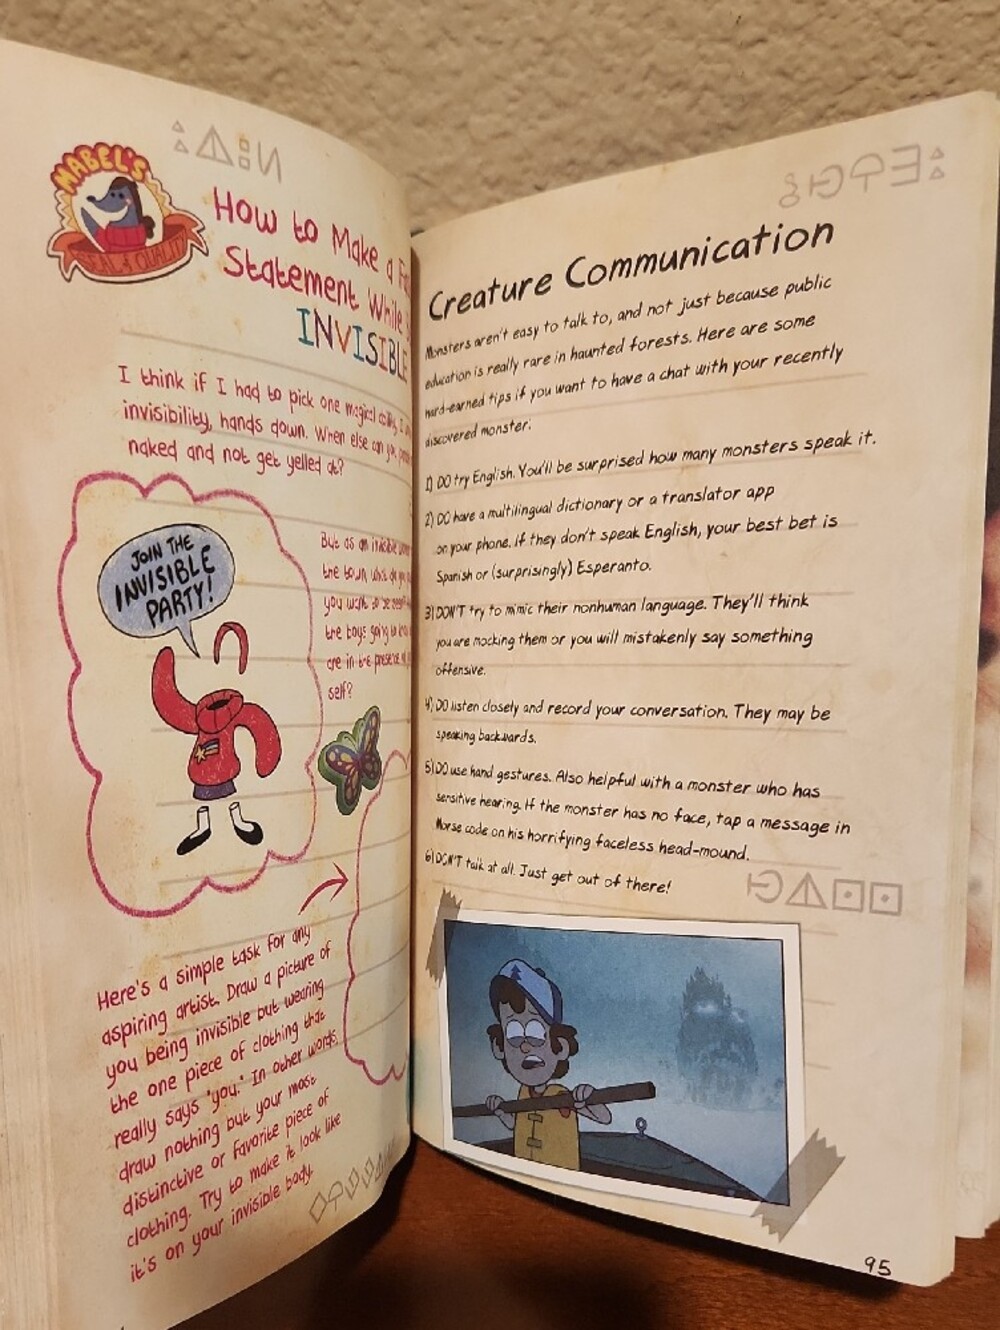 MABEL'S
SEAL of QUALITY
How to Make a
Statement While
INVISIBLE
I think if I had to pick one magical ability, I
invisibility, hands down. When else can you
naked and not get yelled at?
JOIN THE
INVISIBLE
PARTY!
But as an invisible
the town, what do you
you want to be seen?
the boys going to know
are in the presence of
self?
Here's a simple task for any
aspiring artist. Draw a picture of
you being invisible but wearing
the one piece of clothing that
really says "you." In other words,
draw nothing but your most
distinctive or favorite piece of
clothing. Try to make it look like
it's on your invisible body.
Creature Communication
Monsters aren't easy to talk to, and not just because public
education is really rare in haunted forests. Here are some
hard-earned tips if you want to have a chat with your recently
discovered monster:
1) DO try English. You'll be surprised how many monsters speak it.
2) DO have a multilingual dictionary or a translator app
on your phone. If they don't speak English, your best bet is
Spanish or (surprisingly) Esperanto.
3) DON'T try to mimic their nonhuman language. They'll think
you are mocking them or you will mistakenly say something
offensive.
4) DO listen closely and record your conversation. They may be
speaking backwards.
5) DO use hand gestures. Also helpful with a monster who has
sensitive hearing. If the monster has no face, tap a message in
Morse code on his horrifying faceless head-mound.
6) DON'T talk at all. Just get out of there!
95